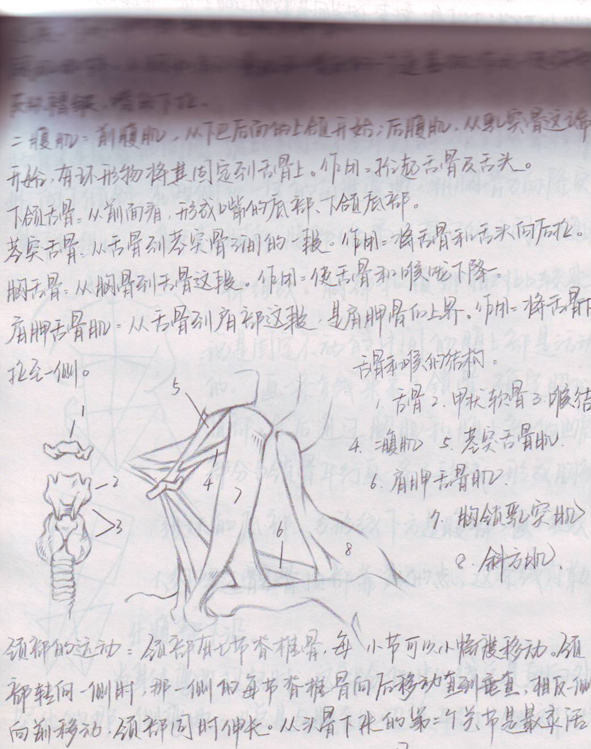 二腹肌=前腹肌，从下巴后面的上颌开始；后腹肌，从乳突骨这端
开始，有环形物将其固定到舌骨上。作用=抬起舌骨及舌头。
下颌舌骨=从前面看，形成嘴的底部、下颌底部。
茎突舌骨=从舌骨到茎突骨之间的一段。作用=将舌骨和舌头向后拉。
胸舌骨=从胸骨到舌骨这段。作用=使舌骨和喉咙下降。
肩胛舌骨肌=从舌骨到肩部这段，是肩胛骨的上界。作用=将舌骨下
拉至一侧。
舌骨和喉的结构。
1. 舌骨 2. 甲状软骨 3. 喉结
4. 二腹肌 5. 茎突舌骨肌
6. 肩胛舌骨肌
7. 胸锁乳突肌
8. 斜方肌.
1
2
3
5
4
7
6
8
颈部的运动=颈部有七节脊椎骨，每一小节可以小幅度移动。颈
部转向一侧时，那一侧的每节脊椎骨向后移动直到垂直，相反一侧
向前移动，颈部同时伸长。从头骨下来的第二个关节是最灵活